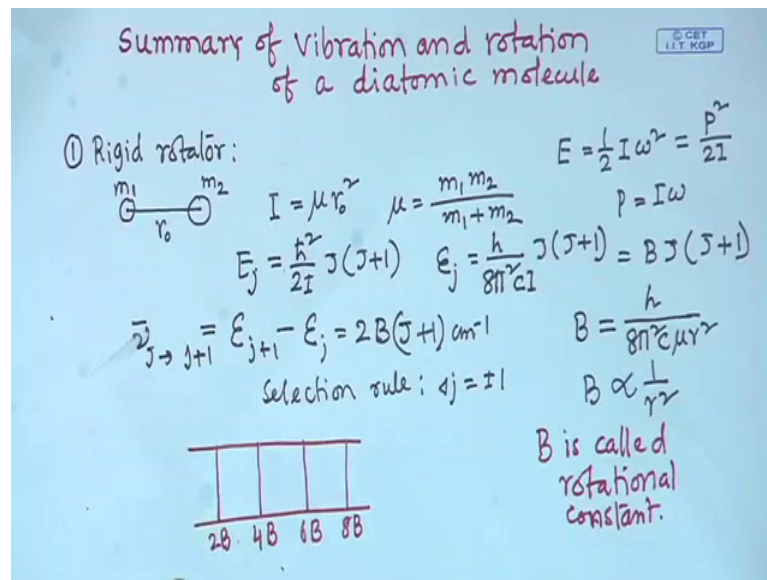 Summary of Vibration and rotation
of a diatomic molecule
© CET
I.I.T. KGP
① Rigid rotator:
E = ½ I ω² = P²/2I
m₁ m₂
r₀
I = μr₀² μ = m₁m₂/(m₁+m₂)
P = Iω
E_j = ħ²/2I J(J+1) ε_j = h/8π²cI J(J+1) = BJ(J+1)
ν̄_J→J+1 = ε_j+1 - ε_j = 2B(J+1) cm⁻¹
B = h/8π²cμr²
Selection rule: Δj = ±1
B ∝ 1/r²
B is called
rotational
constant.
2B 4B 6B 8B